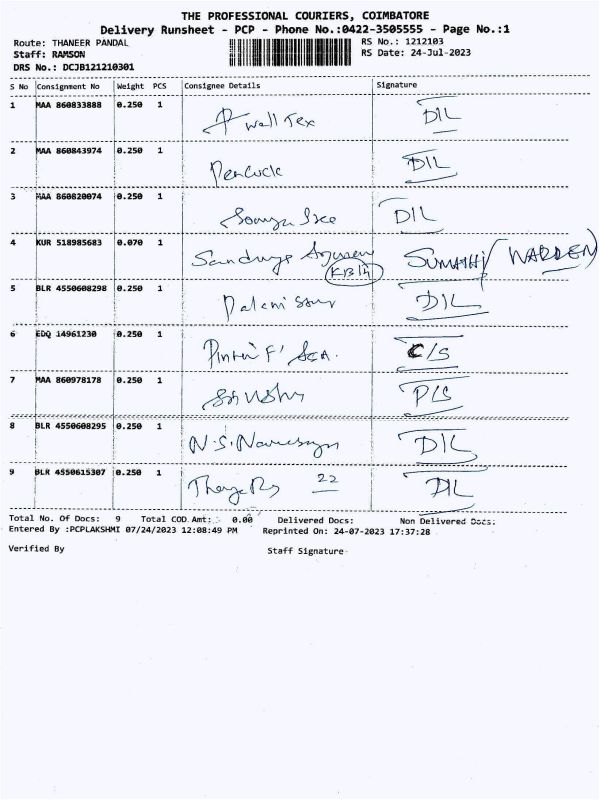 THE PROFESSIONAL COURIERS, COIMBATORE
Delivery Runsheet - PCP - Phone No.:0422-3505555 - Page No.:1
Route: THANEER PANDAL RS No.: 1212103
Staff: RAMSON RS Date: 24-Jul-2023
DRS No.: DCJB121210301
S No Consignment No Weight PCS Consignee Details Signature
1 MAA 860833888 0.250 1 wall Tex D/L
2 MAA 860843974 0.250 1 D/L
3 MAA 860820074 0.250 1 D/L
4 KUR 518985683 0.070 1 SUMATHI (WARDEN)
5 BLR 4550608298 0.250 1 D/L
6 EDQ 14961230 0.250 1 C/S
7 MAA 860978178 0.250 1 P/S
8 BLR 4550608295 0.250 1 N.S. D/L
9 BLR 4550615307 0.250 1 22 D/L
Total No. Of Docs: 9 Total COD Amt: 0.00 Delivered Docs: Non Delivered Docs:
Entered By :PCPLAKSHMI 07/24/2023 12:08:49 PM Reprinted On: 24-07-2023 17:37:28
Verified By Staff Signature